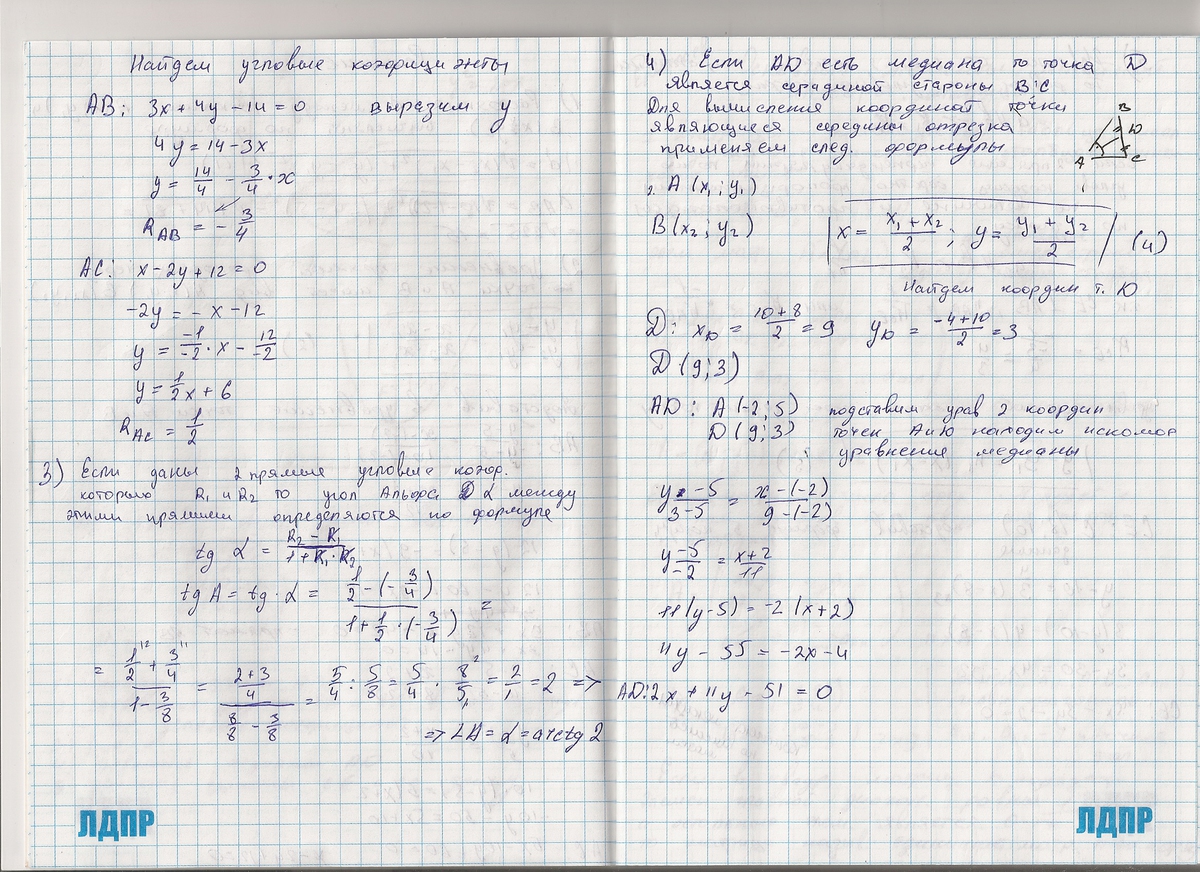 Найдем угловые коэффициэнты
AB: 3x + 4y − 14 = 0 выразим y
4y = 14 − 3x
y = 14/4 − 3/4 · x
k_AB = − 3/4
AC: x − 2y + 12 = 0
−2y = − x − 12
y = −1/−2 · x − 12/−2
y = 1/2 x + 6
k_AC = 1/2
3) Если даны 2 прямые угловые коэф.
которых k₁ и k₂ то угол Альфа α между
этими прямыми определяются по формуле
tg α = (k₂ − k₁)/(1 + k₁ · k₂)
tg A = tg · α = (1/2 − (− 3/4))/(1 + 1/2 · (− 3/4)) =
= (1/2 + 3/4)/(1 − 3/8) = ((2+3)/4)/(8/8 − 3/8) = 5/4 : 5/8 = 5/4 · 8/5 = 2/1 = 2 =>
=> ∠A = α = arctg 2
ЛДПР
4) Если AD есть медиана то точка D
является серединой стороны B;C
Для вычисления координат точки
являющиеся середины отрезка
применяем след. формулы
B
D
A C
A (x₁ ; y₁)
B (x₂ ; y₂) x = (x₁ + x₂)/2 ; y = (y₁ + y₂)/2 (4)
Найдем координ т. D
D: x_D = (10 + 8)/2 = 9 y_D = (−4 + 10)/2 = 3
D (9 ; 3)
AD: A (−2 ; 5) подставим урав 2 координ
D (9 ; 3) точек A и D находим искомое
уравнения медианы
(y − 5)/(3 − 5) = (x − (−2))/(9 − (−2))
(y − 5)/−2 = (x + 2)/11
11(y − 5) = −2(x + 2)
11y − 55 = −2x − 4
AD: 2x + 11y − 51 = 0
ЛДПР